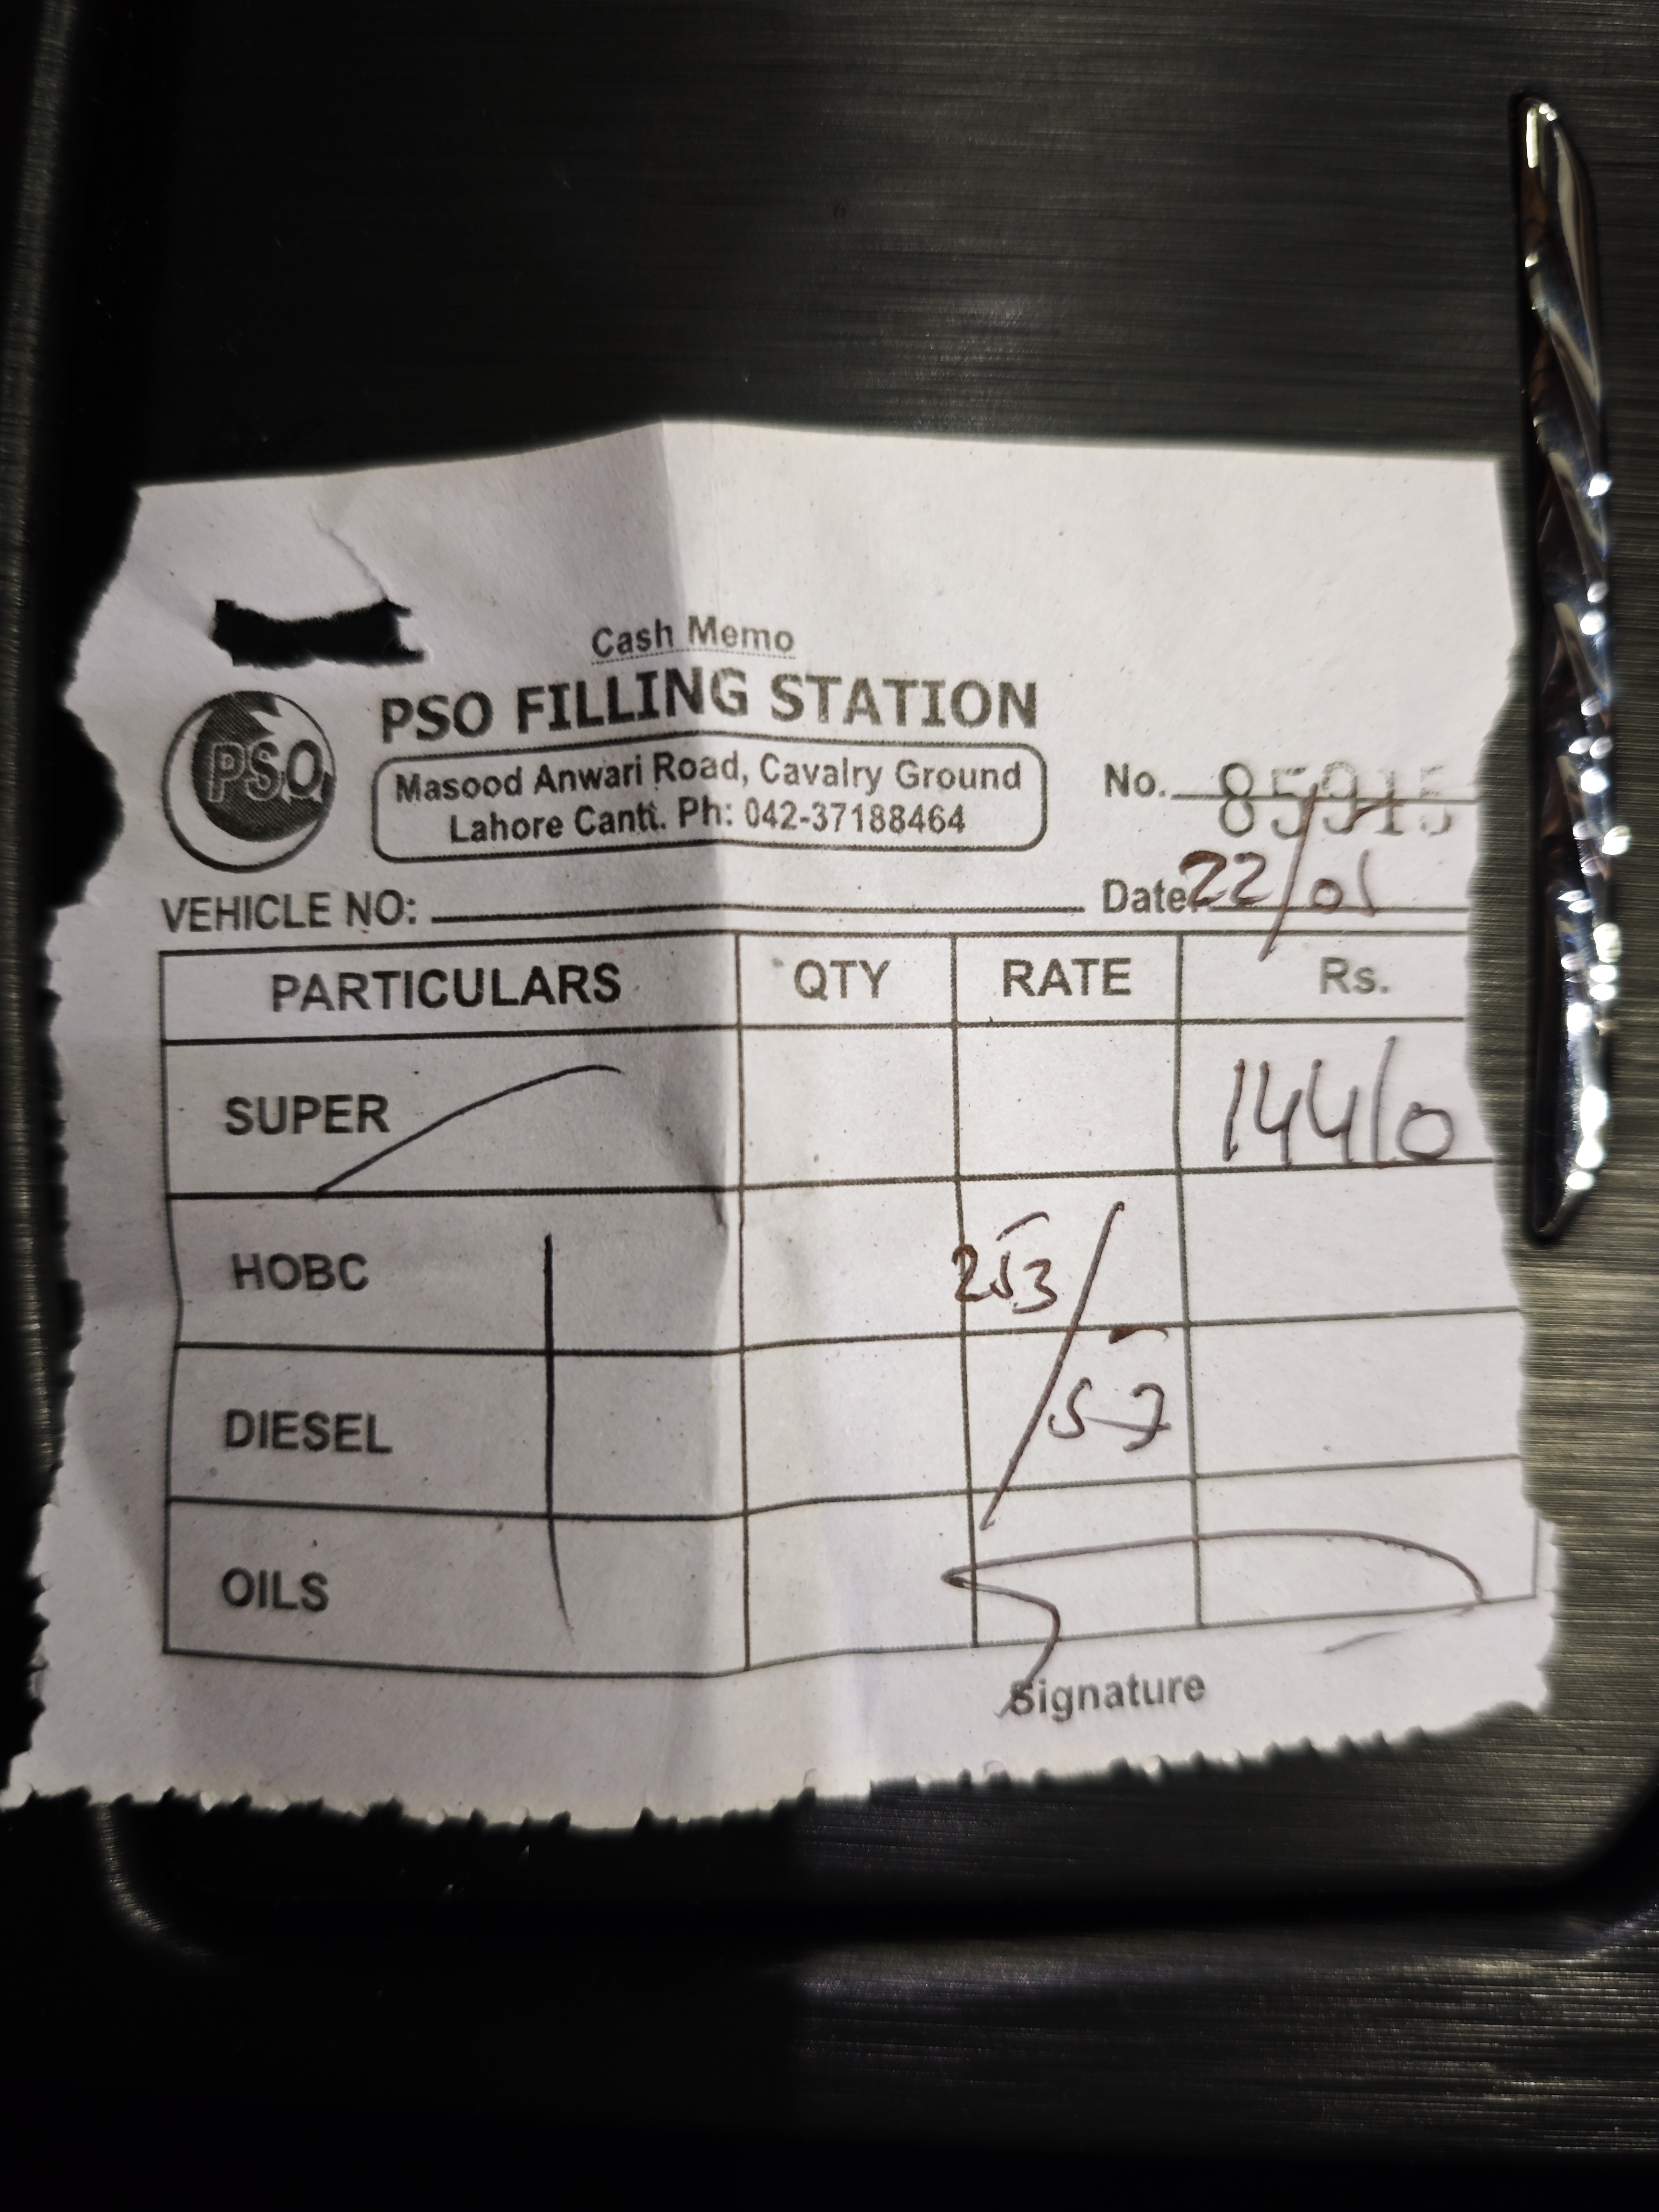 Cash Memo
PSO FILLING STATION
PSO
Masood Anwari Road, Cavalry Ground
Lahore Cantt. Ph: 042-37188464
No. 85915
VEHICLE NO:
Date: 22/01
PARTICULARS QTY RATE Rs.
SUPER 14410
HOBC 253
DIESEL 57
OILS
Signature